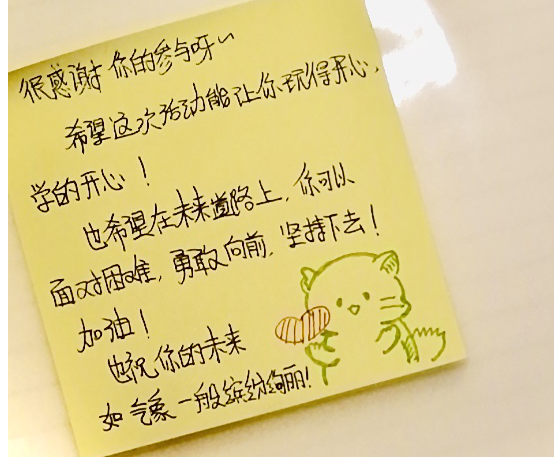 很感谢 你的参与呀~
希望这次活动能让你玩得开心,
学的开心!
也希望在未来道路上,你可以
面对困难,勇敢向前,坚持下去!
加油!
也祝你的未来
如气象一般缤纷绚丽!